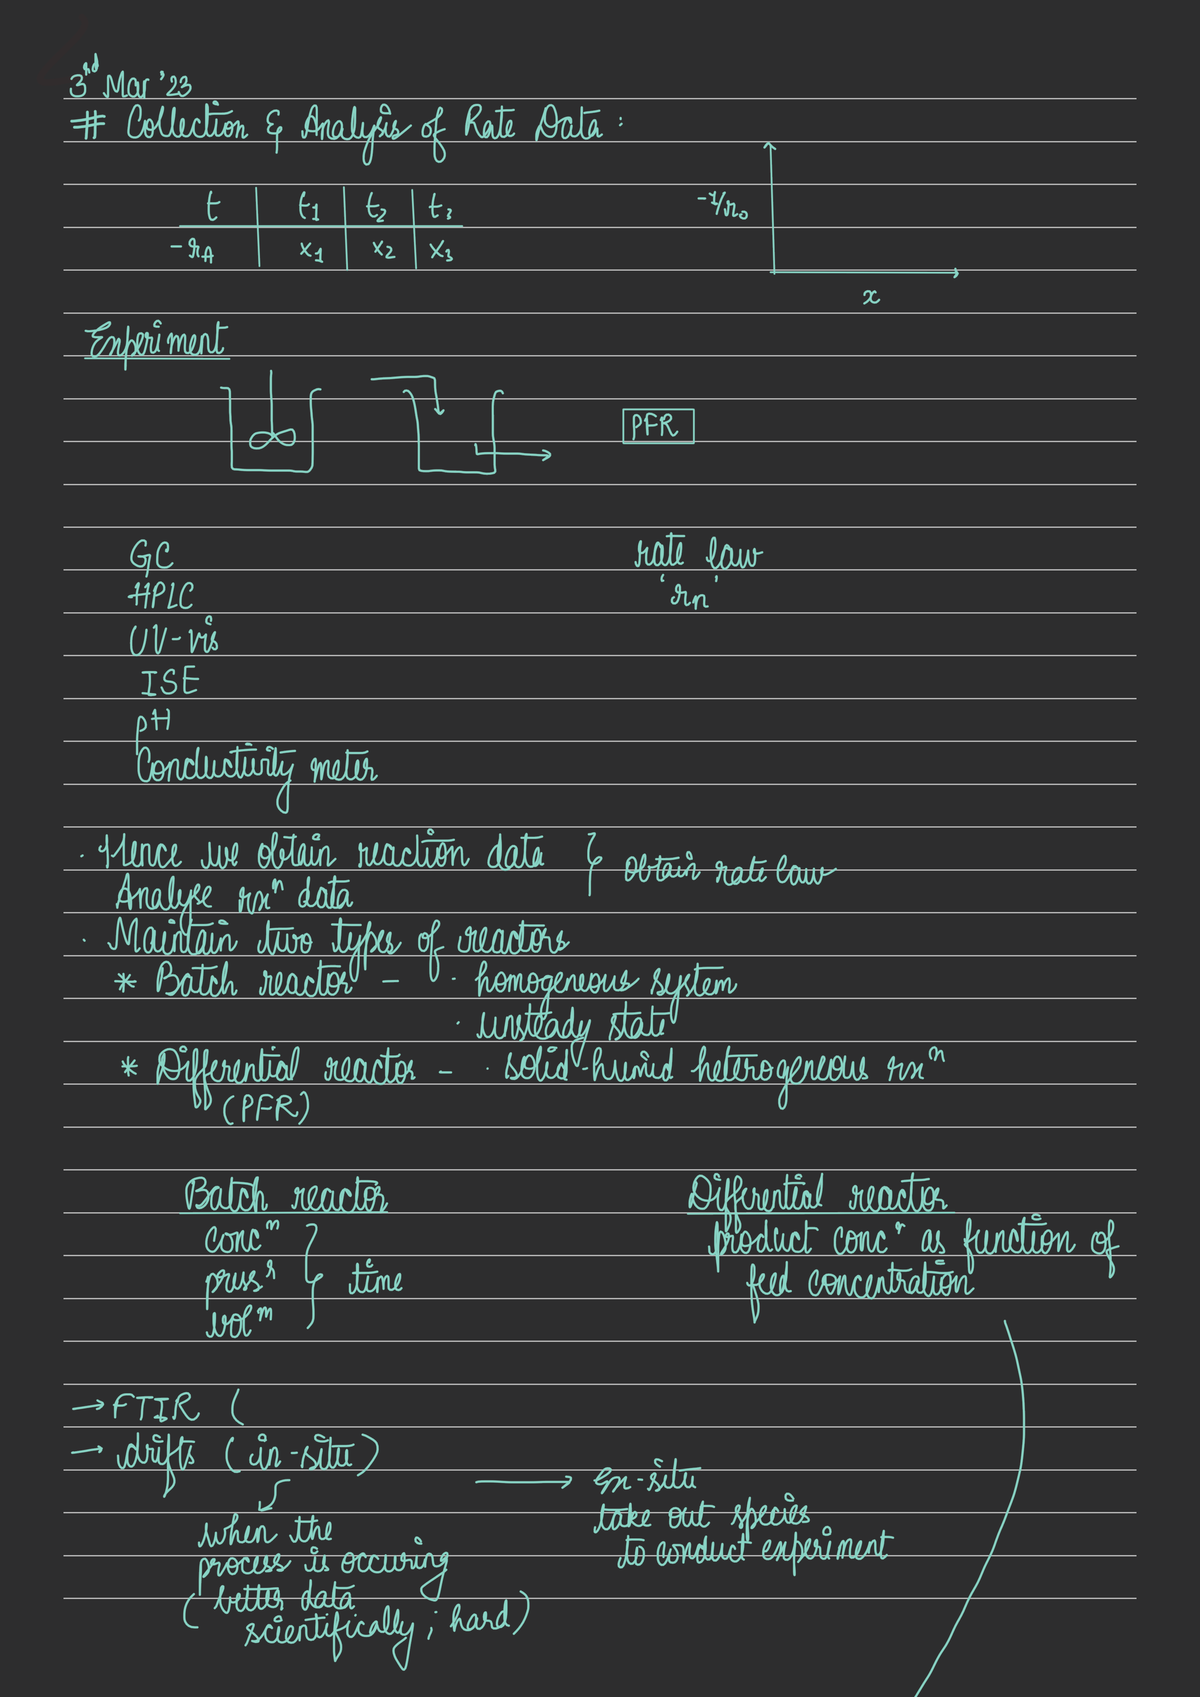 3rd Mar '23
# Collection & Analysis of Rate Data :
t t1 t2 t3
-rA x1 x2 x3
-1/r0
x
Experiment
PFR
GC
HPLC
UV-vis
ISE
pH
Conductivity meter
rate law
'rn'
· Hence we obtain reaction data } Obtain rate law
Analyse rxn data
· Maintain two types of reactors
* Batch reactor - · homogeneous system
· unsteady state
* Differential reactor - · solid-humid heterogeneous rxn
(PFR)
Batch reactor
concn
pressr } time
volm
Differential reactor
product concn as function of
feed concentration
→ FTIR (
→ drifts (in-situ)
when the
process is occuring
( better data
scientifically ; hard)
→ Ex-situ
take out species
to conduct experiment